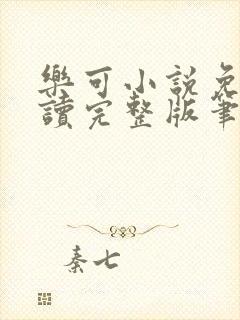 樂可小説免
讀完整版筆
秦七